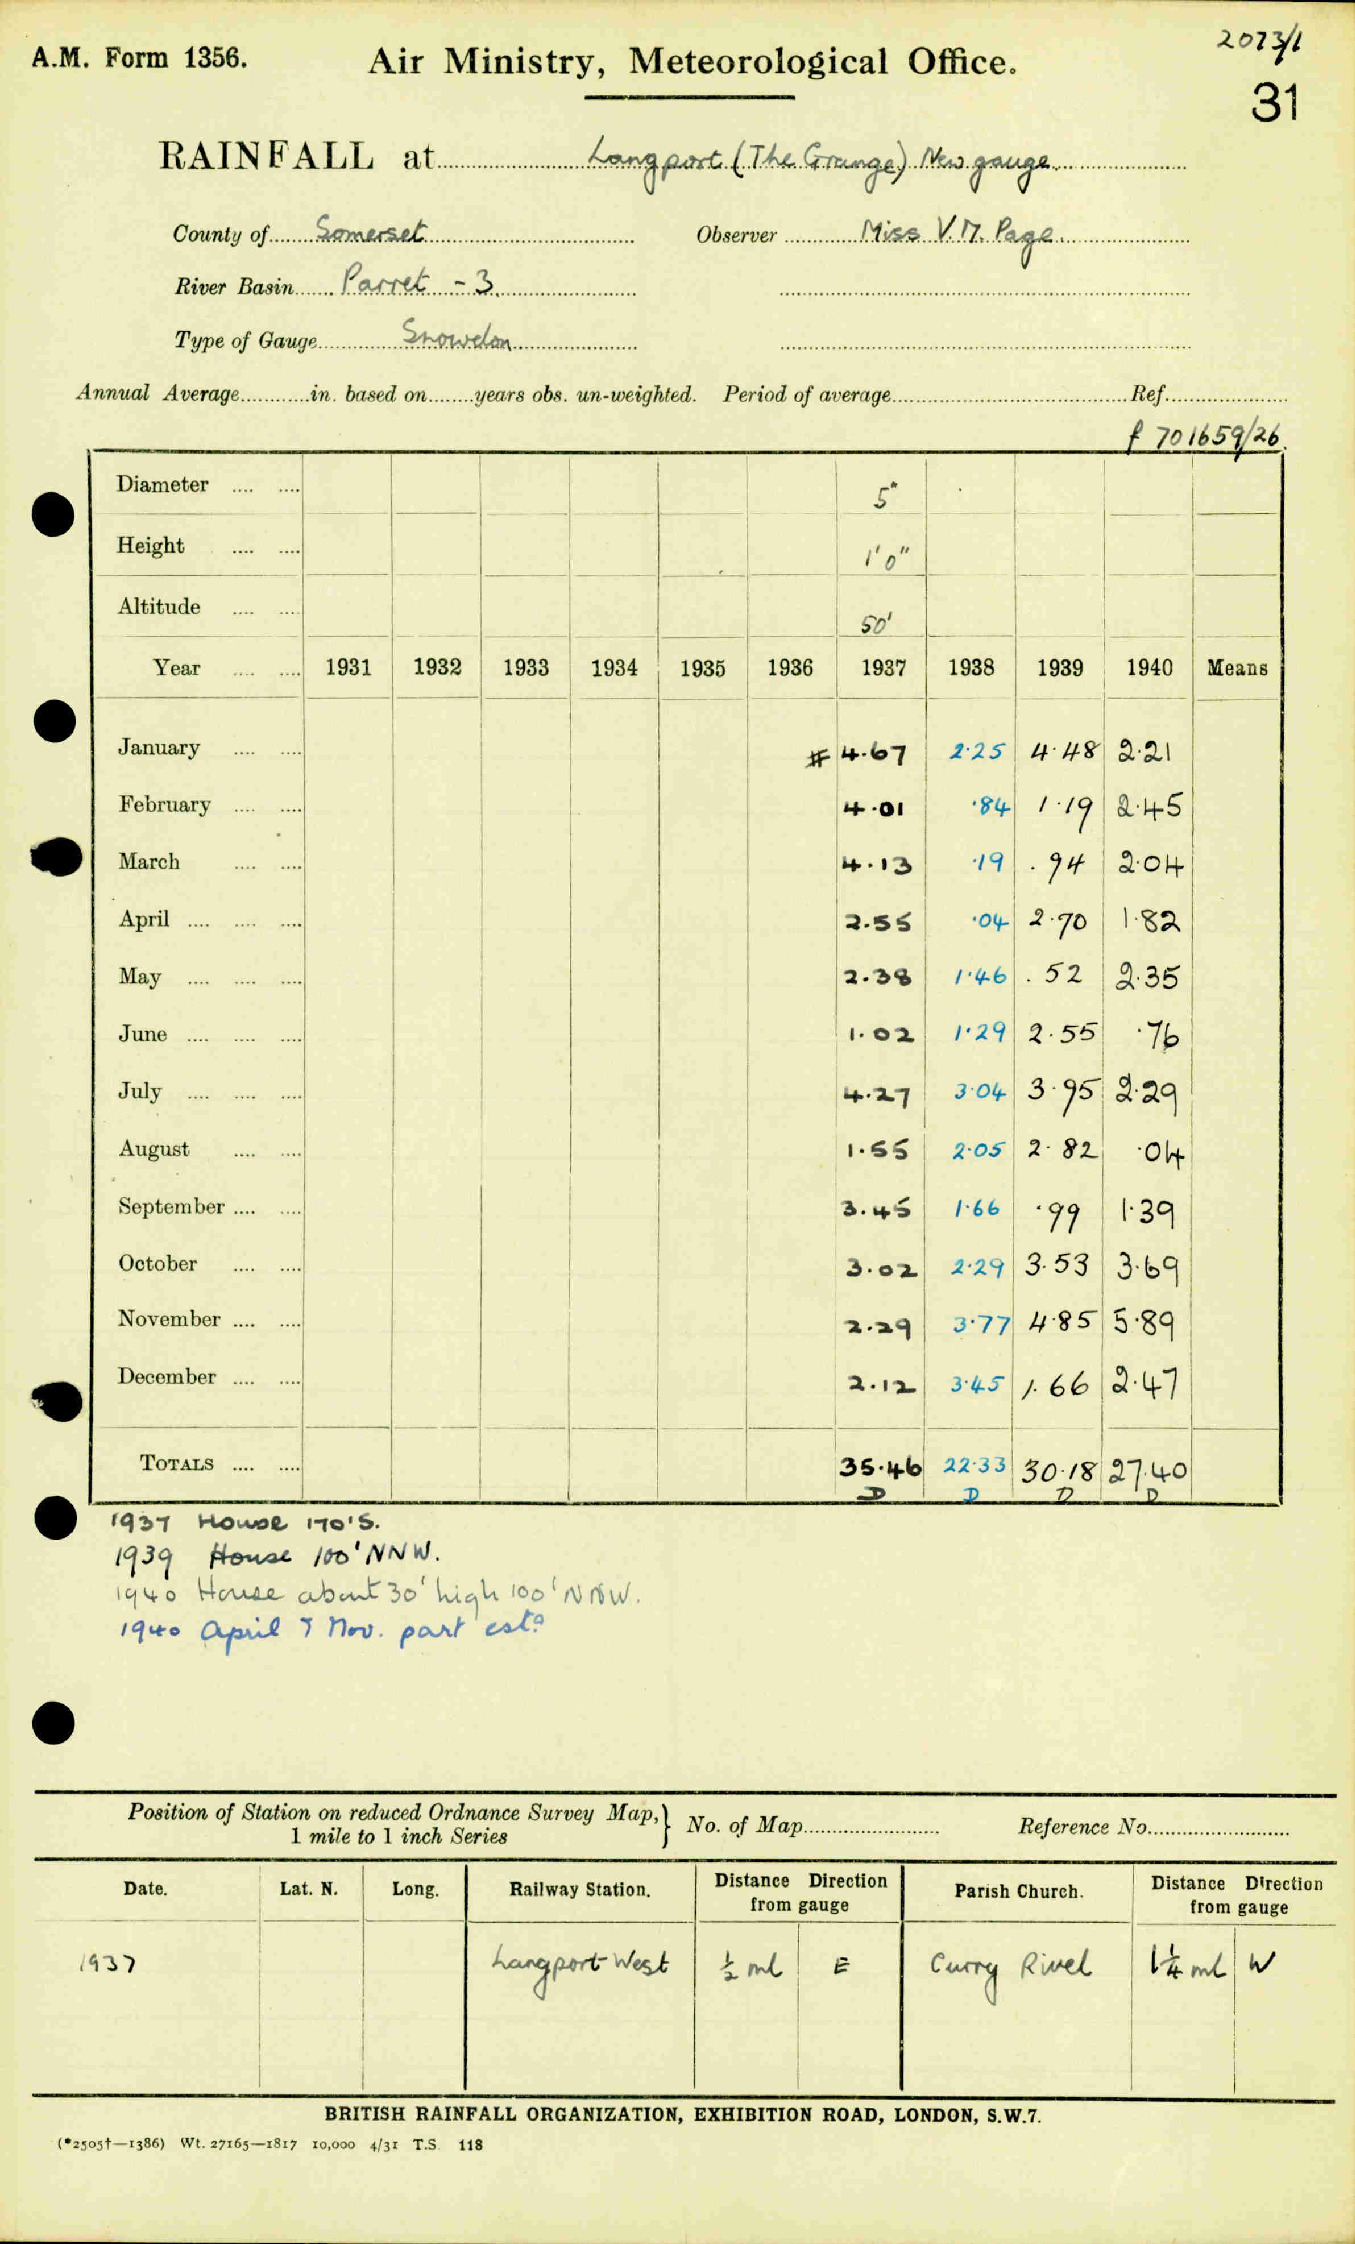 2073/1
A.M. Form 1356. Air Ministry, Meteorological Office.
31
RAINFALL at Langport (The Grange) New gauge.
County of Somerset Observer Miss V. M. Page.
River Basin Parret - 3.
Type of Gauge Snowdon
Annual Average in. based on years obs. un-weighted. Period of average Ref.
f 701659/26.
Diameter 5"
Height 1' 0"
Altitude 50'
Year 1931 1932 1933 1934 1935 1936 1937 1938 1939 1940 Means
January # 4.67 2.25 4.48 2.21
February 4.01 .84 1.19 2.45
March 4.13 .19 .94 2.04
April 2.55 .04 2.70 1.82
May 2.38 1.46 .52 2.35
June 1.02 1.29 2.55 .76
July 4.27 3.04 3.95 2.29
August 1.55 2.05 2.82 .04
September 3.45 1.66 .99 1.39
October 3.02 2.29 3.53 3.69
November 2.29 3.77 4.85 5.89
December 2.12 3.45 1.66 2.47
TOTALS 35.46 22.33 30.18 27.40
D D D D
1937 House 170'S.
1939 House 100' NNW.
1940 House about 30' high 100' NNW.
1940 April & Nov. part estd
Position of Station on reduced Ordnance Survey Map, } No. of Map Reference No.
1 mile to 1 inch Series
Date. Lat. N. Long. Railway Station. Distance Direction from gauge Parish Church. Distance Direction from gauge
1937 Langport West ½ ml E Curry Rivel 1¼ ml W
BRITISH RAINFALL ORGANIZATION, EXHIBITION ROAD, LONDON, S.W.7.
(*2505†—1386) Wt. 27165—1817 10,000 4/31 T.S. 118